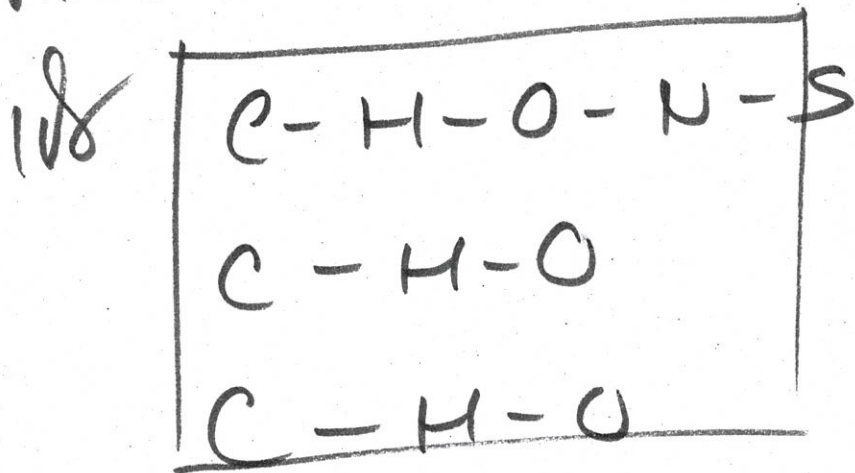 C - H - O - N - S
C - H - O
C - H - O